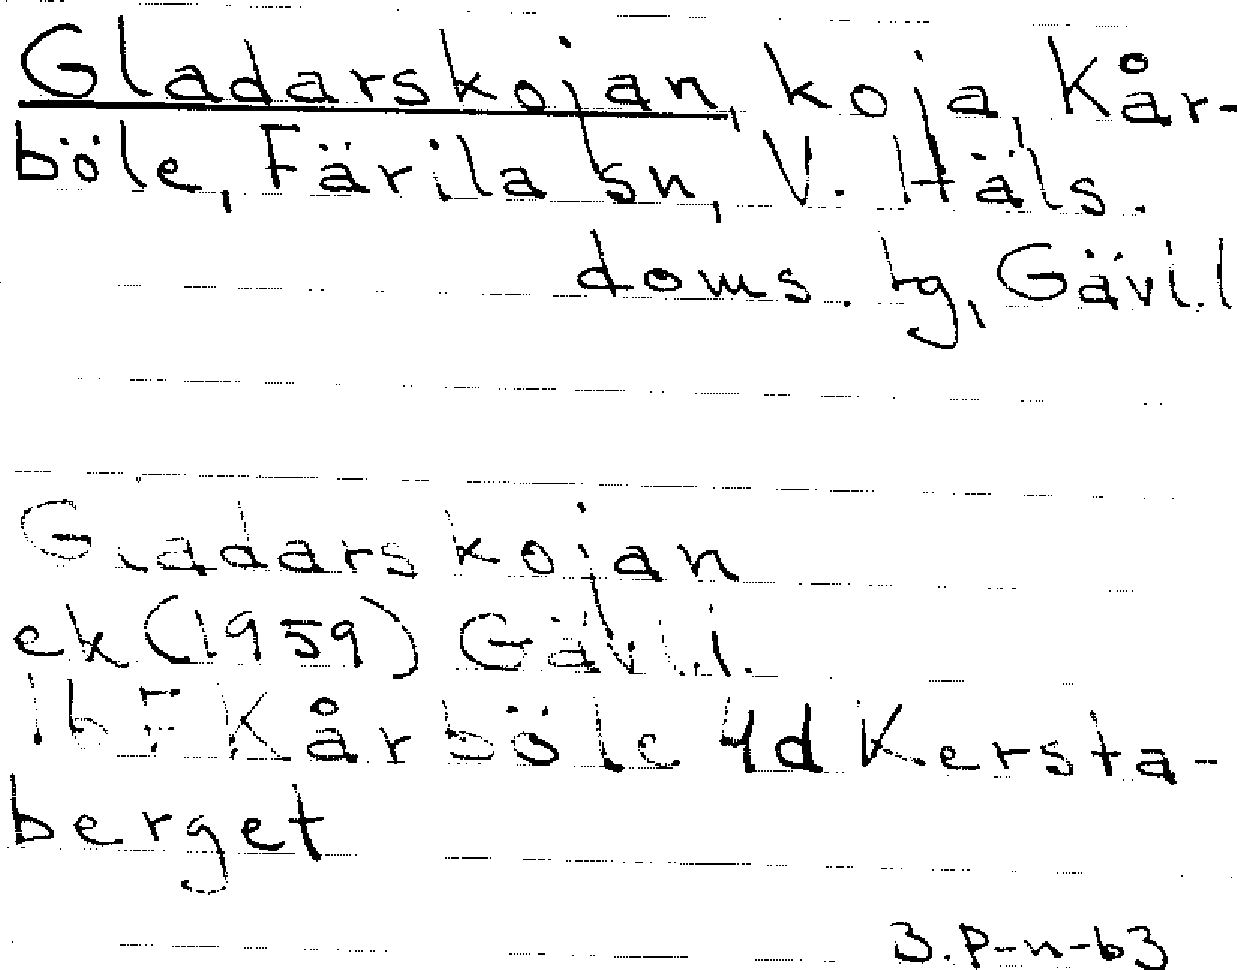 Gladarskojan, koja, Kår-
böle, Färila sn, V. Häls.
doms. lg, Gävl.l
Gladarskojan
ek (1959) Gävl.l.
16F Kårböle 4d Kersta-
berget
3.P-n-63